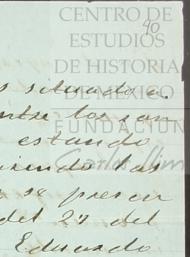 CENTRO DE
ESTUDIOS
DE HISTORIA
DE MÉXICO
FUNDACIÓN
Carlos Slim
40
situado a
entre los
estando
las
se presen
del 27 del
Eduardo